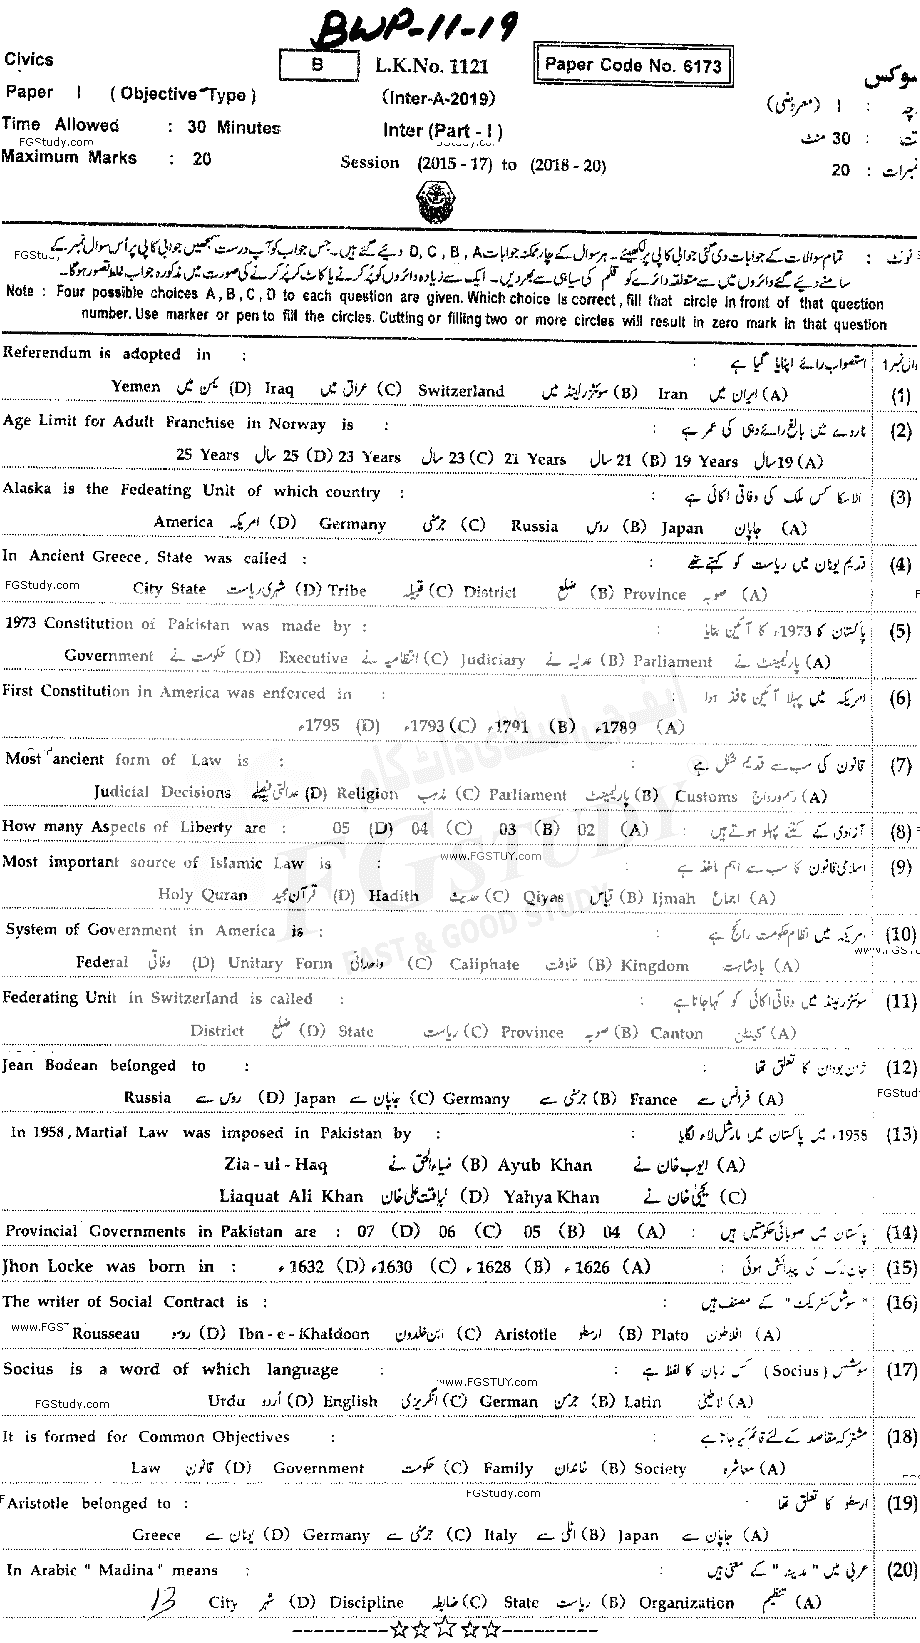 BWP-11-19
Civics B L.K.No. 1121 Paper Code No. 6173 سوکس
Paper I (Objective Type) (Inter-A-2019) پرچہ : I (معروضی)
Time Allowed : 30 Minutes Inter (Part - I) وقت : 30 منٹ
FGStudy.com
Maximum Marks : 20 Session (2015 - 17) to (2018 - 20) نمبرات : 20
نوٹ : تمام سوالات کے جوابات دی گئی جوابی کاپی پر لکھیئے۔ ہر سوال کے چار ممکنہ جوابات D, C, B, A دیئے گئے ہیں۔ جس جواب کو آپ درست سمجھیں جوابی کاپی پر اُس سوال نمبر کے
سامنے دیے گئے دائروں میں سے متعلقہ دائرے کو قلم کی سیاہی سے بھر دیں۔ ایک سے زیادہ دائروں کو پُر کرنے یا کاٹ کر پُر کرنے کی صورت میں مذکورہ جواب غلط تصور ہوگا۔
Note : Four possible choices A, B, C, D to each question are given. Which choice is correct, fill that circle in front of that question
number. Use marker or pen to fill the circles. Cutting or filling two or more circles will result in zero mark in that question
Referendum is adopted in : استصواب رائے اپنایا گیا ہے : سوال نمبر 1
Yemen یمن میں (D) Iraq عراق میں (C) Switzerland سوئٹزرلینڈ میں (B) Iran ایران میں (A) (1)
Age Limit for Adult Franchise in Norway is : ناروے میں بالغ رائے دہی کی عمر ہے : (2)
25 Years 25 سال (D) 23 Years 23 سال (C) 21 Years 21 سال (B) 19 Years 19 سال (A)
Alaska is the Fedeating Unit of which country : الاسکا کس ملک کی وفاقی اکائی ہے : (3)
America امریکہ (D) Germany جرمنی (C) Russia روس (B) Japan جاپان (A)
In Ancient Greece, State was called : قدیم یونان میں ریاست کو کہتے تھے : (4)
FGStudy.com City State شہری ریاست (D) Tribe قبیلہ (C) District ضلع (B) Province صوبہ (A)
1973 Constitution of Pakistan was made by : پاکستان کا 1973ء کا آئین بنایا : (5)
Government حکومت نے (D) Executive انتظامیہ نے (C) Judiciary عدلیہ نے (B) Parliament پارلیمینٹ نے (A)
First Constitution in America was enforced in : امریکہ میں پہلا آئین نافذ ہوا : (6)
1795ء (D) 1793ء (C) 1791ء (B) 1789ء (A)
Most ancient form of Law is : قانون کی سب سے قدیم شکل ہے : (7)
Judicial Decisions عدالتی فیصلے (D) Religion مذہب (C) Parliament پارلیمینٹ (B) Customs رسم و رواج (A)
How many Aspects of Liberty are : 05 (D) 04 (C) 03 (B) 02 (A) آزادی کے کتنے پہلو ہوتے ہیں : (8)
www.FGSTUY.com
Most important source of Islamic Law is : اسلامی قانون کا سب سے اہم ماخذ ہے : (9)
Holy Quran قرآن مجید (D) Hadith حدیث (C) Qiyas قیاس (B) Ijmah اجماع (A)
System of Government in America is : امریکہ میں نظام حکومت رائج ہے : (10)
Federal وفاقی (D) Unitary Form وحدانی (C) Caliphate خلافت (B) Kingdom بادشاہت (A)
Federating Unit in Switzerland is called : سوئٹزرلینڈ میں وفاقی اکائی کو کہا جاتا ہے : (11)
District ضلع (D) State ریاست (C) Province صوبہ (B) Canton کینٹن (A)
Jean Bodean belonged to : ژان بودان کا تعلق تھا : (12)
Russia روس سے (D) Japan جاپان سے (C) Germany جرمنی سے (B) France فرانس سے (A) FGStudy
In 1958, Martial Law was imposed in Pakistan by : 1958ء میں پاکستان میں مارشل لاء لگایا : (13)
Zia-ul-Haq ضیاء الحق نے (B) Ayub Khan ایوب خان نے (A)
Liaquat Ali Khan لیاقت علی خان (D) Yahya Khan یحییٰ خان نے (C)
Provincial Governments in Pakistan are : 07 (D) 06 (C) 05 (B) 04 (A) پاکستان میں صوبائی حکومتیں ہیں : (14)
Jhon Locke was born in : 1632ء (D) 1630ء (C) 1628ء (B) 1626ء (A) جان لاک کی پیدائش ہوئی : (15)
The writer of Social Contract is : "سوشل کنٹریکٹ" کے مصنف ہیں : (16)
www.FGS Rousseau روسو (D) Ibn-e-Khaldoon ابن خلدون (C) Aristotle ارسطو (B) Plato افلاطون (A)
Socius is a word of which language : سوشس (Socius) کس زبان کا لفظ ہے : (17)
www.FGSTUY.com
FGStudy.com Urdu اُردو (D) English انگریزی (C) German جرمن (B) Latin لاطینی (A)
It is formed for Common Objectives : مشترکہ مقاصد کے لئے قائم کیا جاتا ہے : (18)
Law قانون (D) Government حکومت (C) Family خاندان (B) Society معاشرہ (A)
FGStudy.com
Aristotle belonged to : ارسطو کا تعلق تھا : (19)
Greece یونان سے (D) Germany جرمنی سے (C) Italy اٹلی سے (B) Japan جاپان سے (A)
In Arabic " Madina" means : عربی میں "مدینہ" کے معنی ہیں : (20)
13 City شہر (D) Discipline ضابطہ (C) State ریاست (B) Organization تنظیم (A)